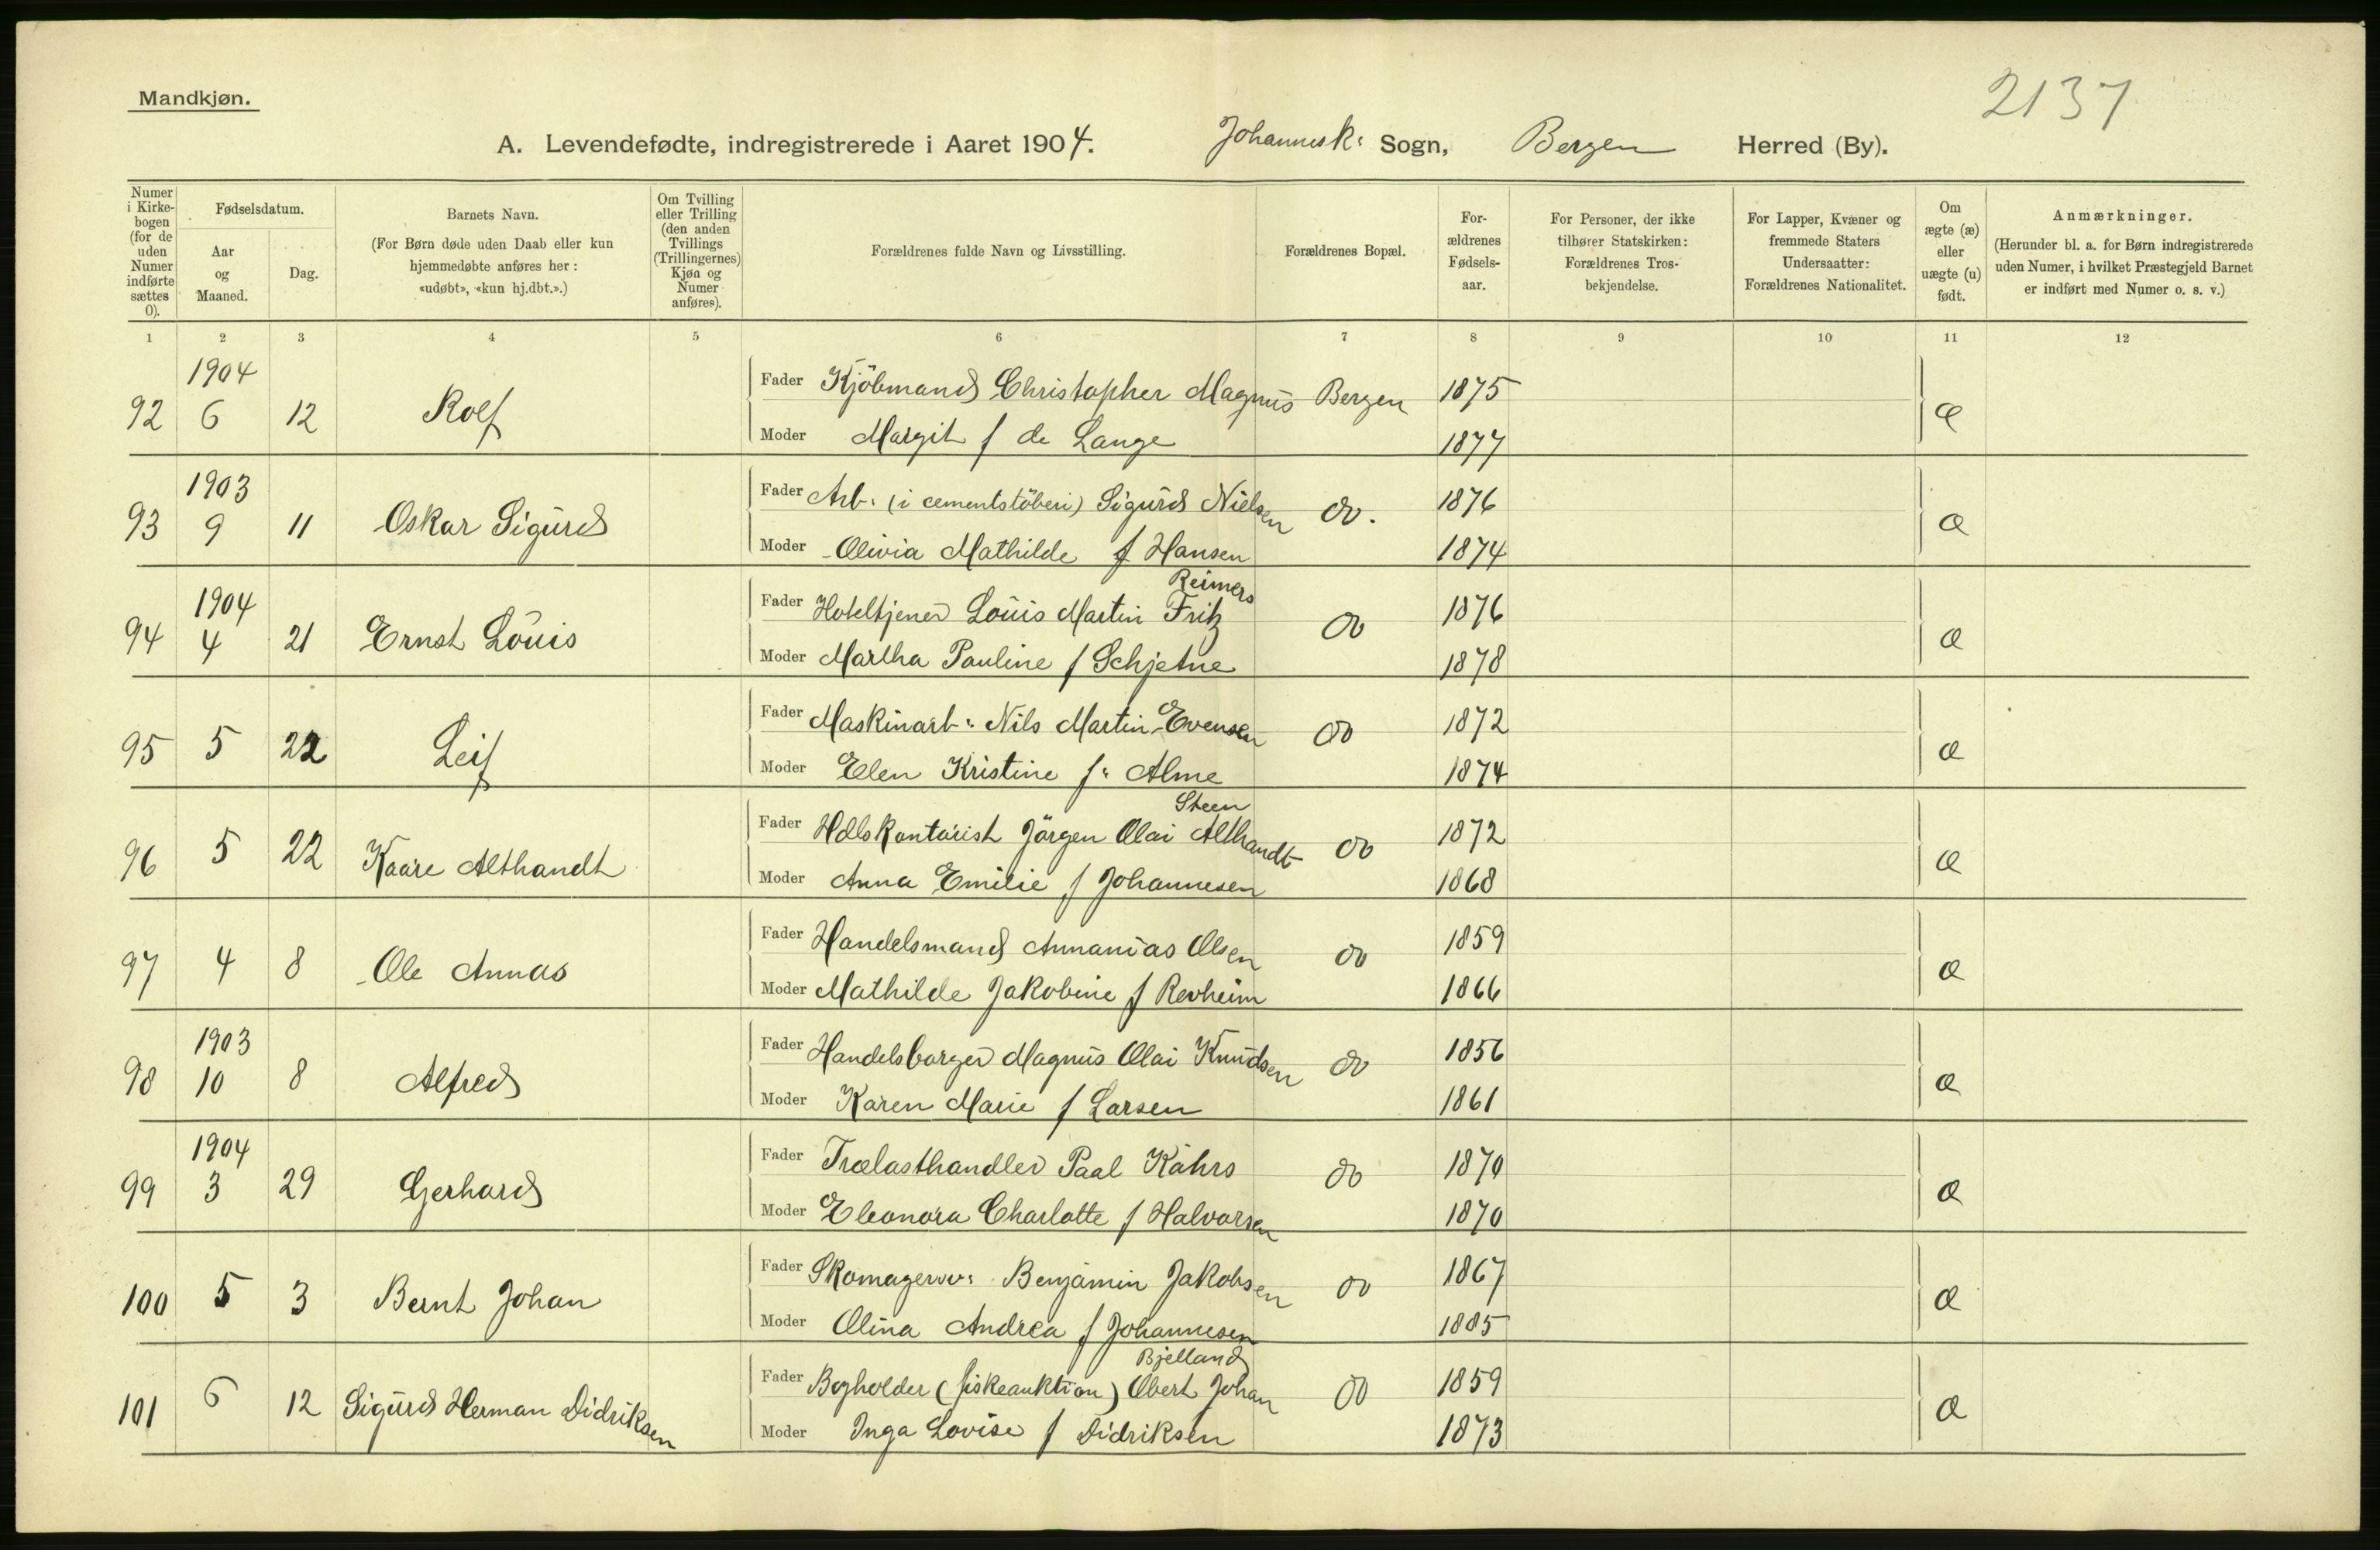 2137
Mandkjøn.
A. Levendefødte, indregistrerede i Aaret 1904. Johannesk: Sogn, Bergen Herred (By).
Numer i Kirke-bogen (for de uden Numer indførte sættes 0).
Fødselsdatum.
Aar og Maaned.
Dag.
Barnets Navn.
(For Børn døde uden Daab eller kun hjemmedøbte anføres her: «udøbt», «kun hj.dbt.».)
Om Tvilling eller Trilling (den anden Tvillings (Trillingernes) Kjøn og Numer anføres).
Forældrenes fulde Navn og Livsstilling.
Forældrenes Bopæl.
For-ældrenes Fødsels-aar.
For Personer, der ikke tilhører Statskirken: Forældrenes Tros-bekjendelse.
For Lapper, Kvæner og fremmede Staters Undersaatter: Forældrenes Nationalitet.
Om ægte (æ) eller uægte (u) født.
Anmærkninger.
(Herunder bl. a. for Børn indregistrerede uden Numer, i hvilket Præstegjeld Barnet er indført med Numer o. s. v.)
1 2 3 4 5 6 7 8 9 10 11 12
1904
92 6 12 Rolf Fader Kjöbmand Christopher Magnus Bergen 1875 æ
Moder Margit f de Lange 1877
1903
93 9 11 Oskar Sigurd Fader Arb: (i cementstöberi) Sigurd Nielsen do. 1876 æ
Moder Olivia Mathilde f Hansen 1874
1904
Reimers
94 4 21 Ernst Louis Fader Hoteltjener Louis Martin Fritz do 1876 æ
Moder Martha Pauline f Schjetne 1878
95 5 22 Leif Fader Maskinarb: Nils Martin Evensen do 1872 æ
Moder Elen Kristine f: Alme 1874
Steen
96 5 22 Kaare Althandt Fader Hdlskontorist Jörgen Olai Althandt do 1872 æ
Moder Anna Emilie f Johannesen 1868
97 4 8 Ole Annas Fader Handelsmand Annanias Olsen do 1859 æ
Moder Mathilde Jakobine f Revheim 1866
1903
98 10 8 Alfred Fader Handelsborger Magnus Olai Knudsen do 1856 æ
Moder Karen Marie f Larsen 1861
1904
99 3 29 Gerhard Fader Trælasthandler Paal Kahrs do 1870 æ
Moder Eleonora Charlotte f Halvorsen 1870
100 5 3 Bernt Johan Fader Skomagersv: Benjamin Jakobsen do 1867 æ
Moder Olina Andrea f Johannesen 1885
Bjelland
101 6 12 Sigurd Herman Didriksen Fader Bogholder (fiskeauktion) Obert Johan do 1859 æ
Moder Inga Lovise f Didriksen 1873